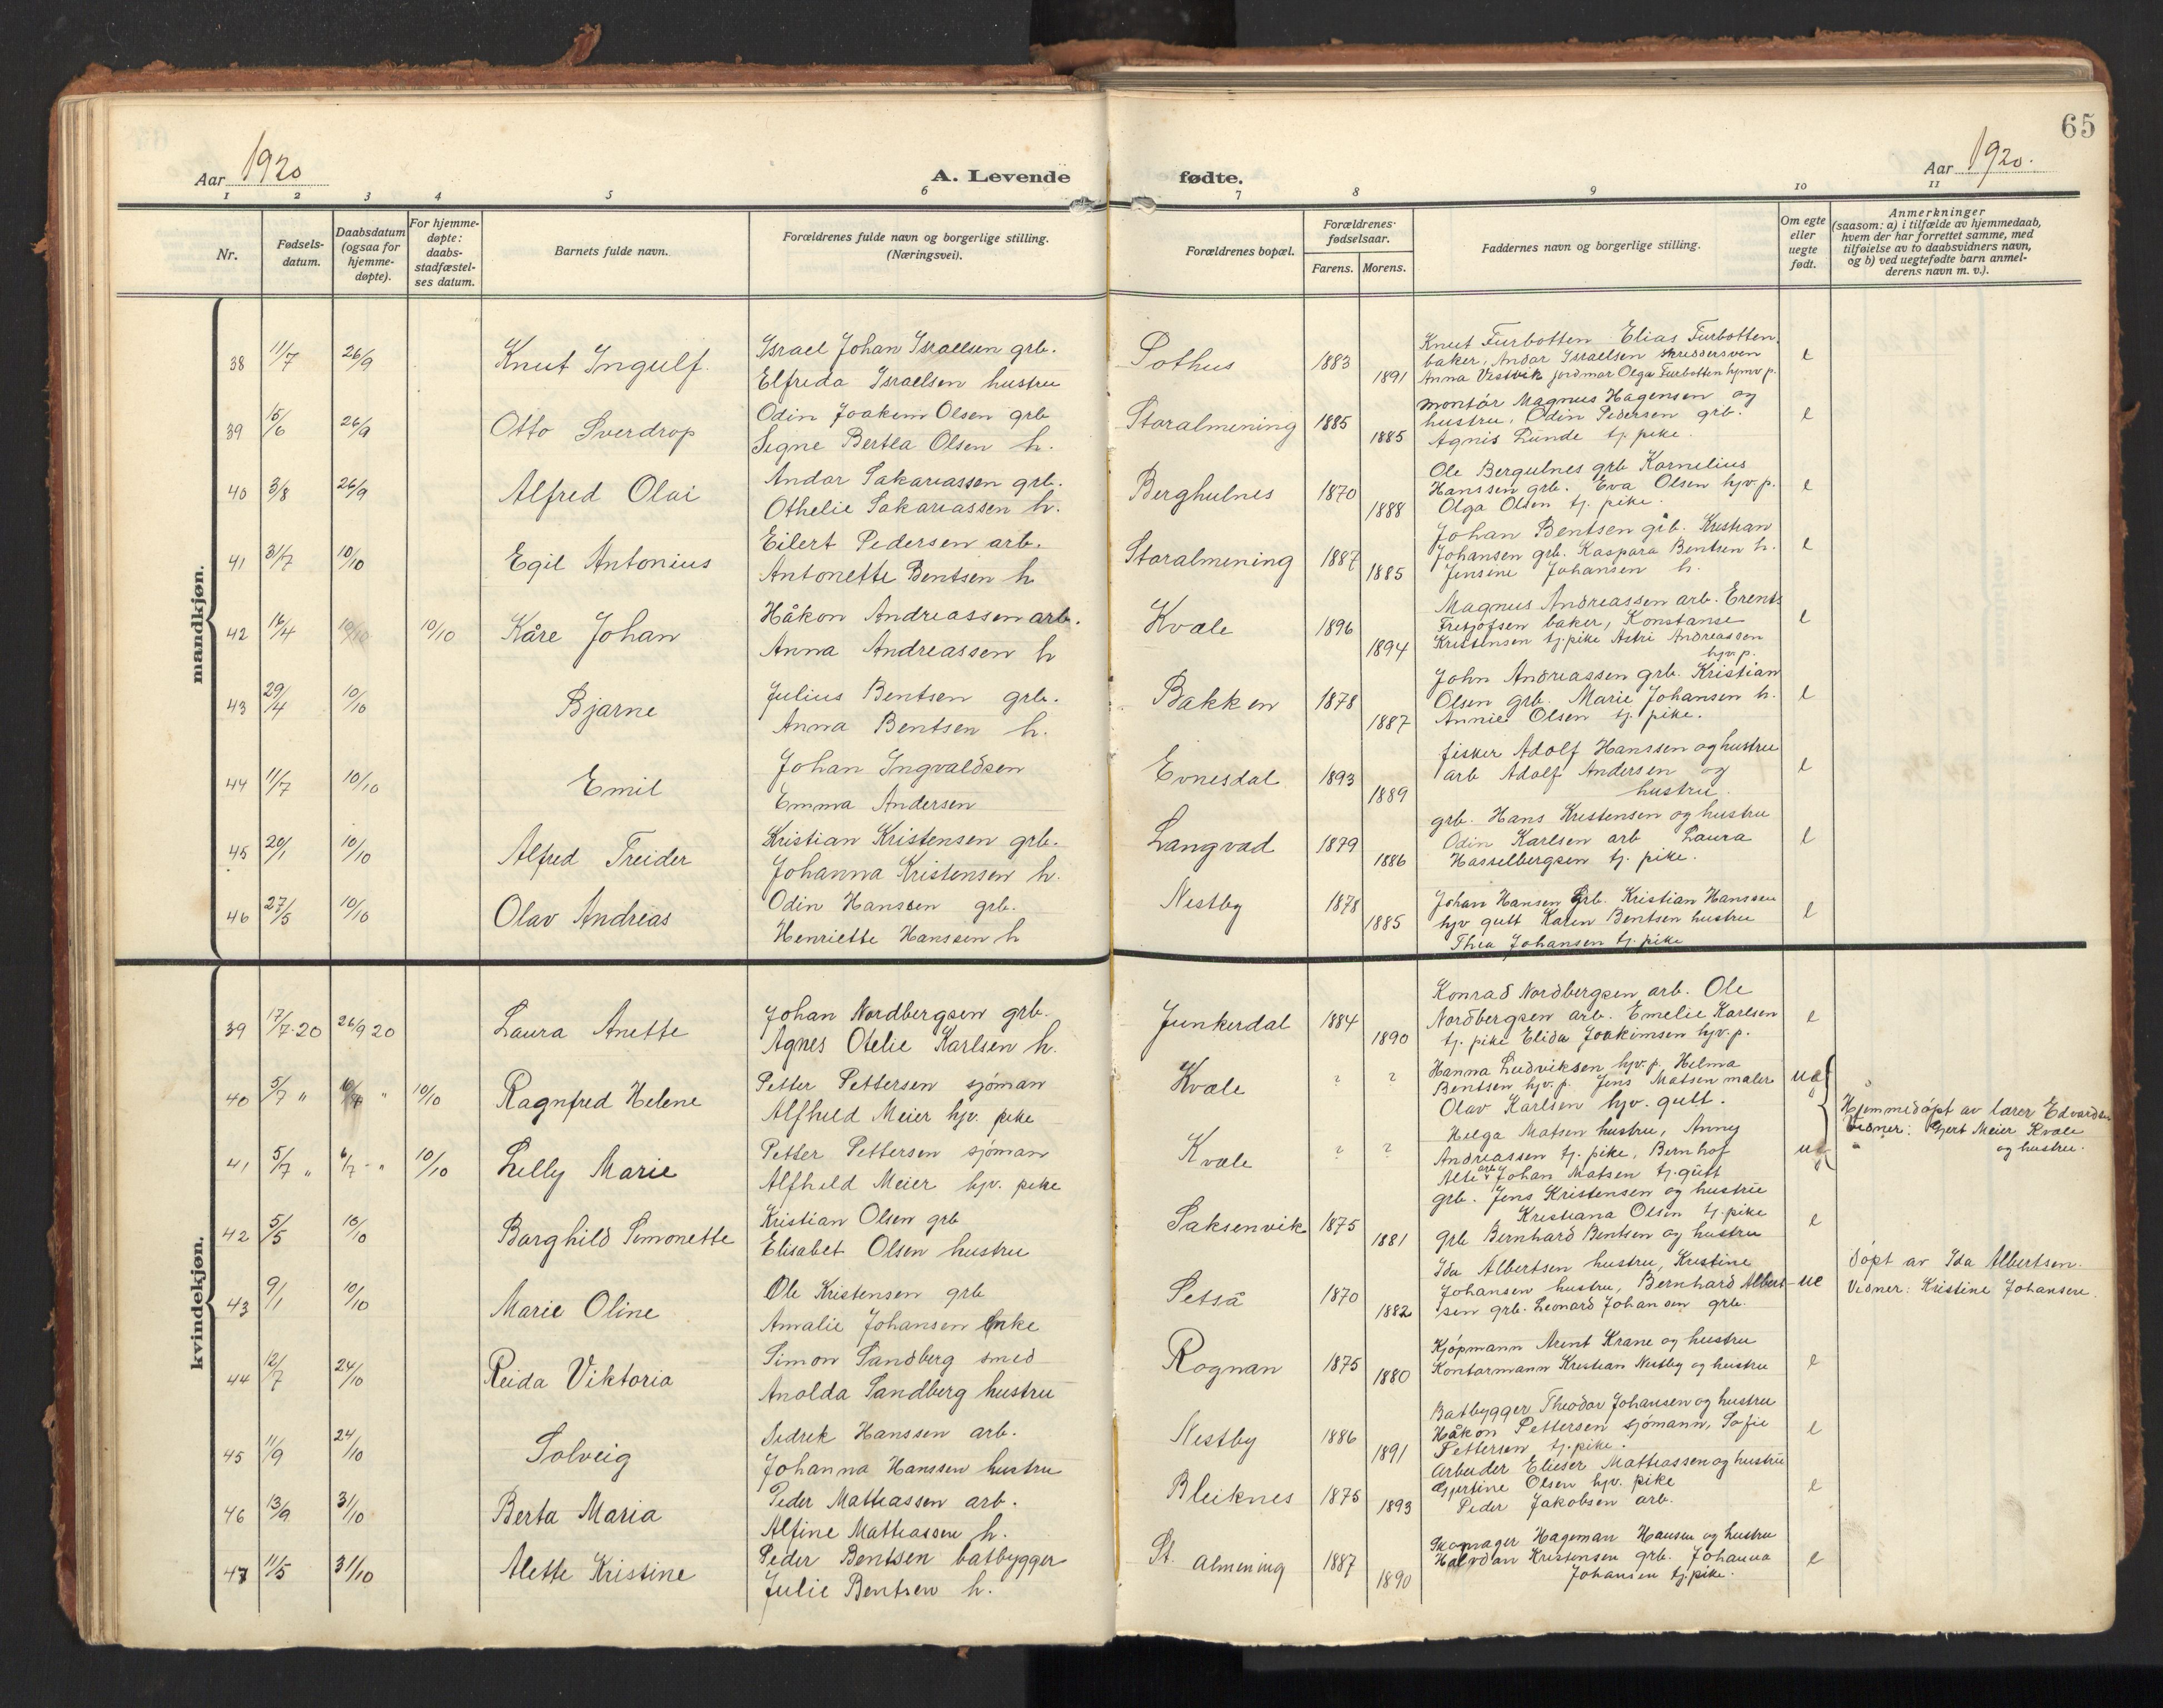 65
Aar 1920
A. Levende
fødte.
Aar 1920.
1 2 3 4 5 6 7 8 9 10 11
Nr.
Fødsels-
datum.
Daabsdatum
(ogsaa for
hjemme-
døpte).
For hjemme-
døpte:
daabs-
stadfæstel-
ses datum.
Barnets fulde navn.
Forældrenes fulde navn og borgerlige stilling.
(Næringsvei).
Forældrenes bopæl.
Forældrenes
fødselsaar.
Farens. Morens.
Faddernes navn og borgerlige stilling.
Om egte
eller
uegte
født.
Anmerkninger
(saasom: a) i tilfælde av hjemmedaab,
hvem der har forrettet samme, med
tilføielse av to daabsvidners navn,
og b) ved uegtefødte barn anmel-
derens navn m. v.).
mandkjøn.
38 11/7 26/9 Knut Ingulf.
Israel Johan Israelsen grb.
Elfreda Israelsen hustru
Sothus 1883 1891
Knut Furbotten Elias Furbotten
baker, Andor Israelsen skreddersven
Anna Vestvik jordmor Olga Furbotten hjmv p.
e
39 15/6 26/9 Otto Sverdrop
Odin Joakim Olsen grb
Signe Bertea Olsen h.
Storalmening 1885 1885
montör Magnus Hagensen og
hustru, Odin Pedersen grb.
Agnis Lunde tj. pike.
e
40 3/8 26/9 Alfred Olai
Andor Sakariassen grb.
Othelie Sakariassen h.
Berghulnes 1870 1888
Ole Bergulnes grb Kornelius
Hanssen grb. Eva Olsen hjv. p.
Olga Olsen tj. pike.
e
41 31/7 10/10 Egil Antonius
Eilert Pedersen arb.
Antonette Bentsen h
Storalmening 1887 1885
Johan Bentsen grb. Kristian
Johansen grb. Kaspara Bentsen h.
Jensine Johansen h.
e
42 16/4 10/10 10/10 Kåre Johan
Håkon Andreassen arb.
Anna Andreassen h
Kvæle 1896 1894
Magnus Andreassen arb. Erents
Fretjofsen baker, Konstanse
Kristensen tj. pike Astri Andreassen
hjv. p.
e
43 29/4 10/10 Bjarne
Julius Bentsen grb.
Anna Bentsen h.
Bakken 1878 1887
John Andreassen grb. Kristian
Olsen grb. Marie Johansen h.
Annie Olsen tj. pike.
e
44 11/7 10/10 Emil
Johan Ingvaldsen
Emma Andersen
Evnesdal 1893 1889
fisker Adolf Hanssen og hustru
arb Adolf Andersen og
hustru.
e
45 20/1 10/10 Alfred Treider
Kristian Kristensen grb.
Johanna Kristensen h.
Langvad 1879 1886
grb. Hans Kristensen og hustru
Odin Karlsen arb Laura
Hasselbergsen tj. pike.
e
46 27/5 10/10 Olav Andreas
Odin Hanssen grb.
Henriette Hanssen h
Nestby 1878 1885
Johan Hansen grb. Kristian Hanssen
hjv gutt Karen Bentsen hustru
Thea Johansen tj. pike
e
kvindekjøn.
39 17/7-20 26/9 20 Laura Anette
Johan Nordbergsen grb.
Agnes Otelie Karlsen h.
Junkerdal 1884 1890
Konrad Nordbergsen arb. Ole
Nordbergsen arb. Emelie Karlsen
tj. pike Elida Joakimsen hjv. p.
e
40 5/7 " 6/7 " 10/10 Ragnfred Helene
Petter Pettersen sjöman
Alfheld Meier hjv. pike
Kvæle ? ?
Hanna Ludviksen hjv. p. Helma
Bentsen hjv. p. Jens Matsen maler
Olav Karlsen hjv. gutt.
ue
Hjemmedöpt av lærer Edvardsen
Vidner: Gjert Meier Kvæle
og hustru.
41 5/7 " 6/7 - " 10/10 Lelly Marie
Petter Pettersen sjöman
Alfheld Meier hjv. pike
Kvæle ? ?
Helga Matsen hustru, Anny
Andreassen tj. pike, Bernhof
Alti arb Johan Matsen tj. gutt
ue "
42 5/5 10/10 Borghild Simonette
Kristian Olsen grb
Elisabet Olsen hustru
Saksenvik 1875 1881
grb. Jens Kristensen og hustru
Kristiana Olsen tj. pike
grb Bernhard Bentsen og hustru
e
43 9/1 10/10 Marie Oline
Ole Kristensen grb
Amalie Johansen Enke
Setså 1870 1882
Ida Albertsen hustru, Kristine
Johansen hustru, Bernhard Albert-
sen grb. Leonard Johansen grb.
ue
döpt av Ida Albertsen.
Vidner: Kristine Johansen.
44 12/7 24/10 Reida Viktoria
Simon Sandberg smed
Anolda Sandberg hustru
Rognan 1875 1880
Kjöpmann Arent Krane og hustru
Kontormann Kristian Nestby og hustru
e
45 11/9 24/10 Solveig
Didrik Hanssen arb.
Johanna Hanssen hustru
Nestby 1886 1891
Batbygger Theodor Johansen og hustru
Håkon Pettersen sjömann, Sofie
Pettersen tj. pike.
e
46 13/9 31/10 Berta Maria
Peder Matiassen arb.
Alfine Matiassen h.
Bleiknes 1875 1893
Arbeider Elieser Mattiassen og hustru
Gjertine Olsen hjv. pike
Peder Jakobsen arb.
e
47 11/5 31/10 Alette Kristine
Peder Bentsen batbygger
Julie Bentsen h.
St. almening 1887 1890
Skomager Hageman Hansen og hustru
Halvdan Kristensen grb. Johanna
Johansen tj. pike.
e